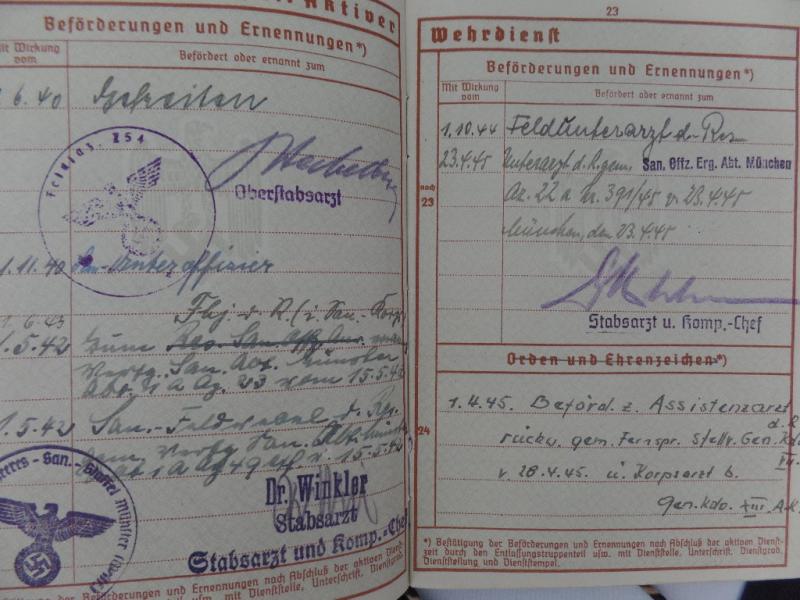 Aktiver
Beförderungen und Ernennungen*)
Mit Wirkung vom
Befördert oder ernannt zum
6.40 Gefreiten
254
Oberstabsarzt
1.11.40 San.-Unteroffizier
1.6.43
1.5.42 zum
Verfg. San. Abt. München
vom 15.5.42
1.5.42 San.-Feldwebel d. Res.
Dr. Winkler
Stabsarzt
Stabsarzt und Komp.-Chef
Heeres-San.-Staffel
Beförderungen und Ernennungen nach Abschluß der aktiven Dienst-
usw. mit Dienststelle, Unterschrift, Dienstgrad,
23
Wehrdienst
Beförderungen und Ernennungen*)
Mit Wirkung vom
Befördert oder ernannt zum
1.10.44 Feldunterarzt d. Res
23.4.45 Unterarzt d. R. gem. San. Offz. Erg. Abt. München
noch 23
Az. 22 a Nr. 391/45 v. 23.4.45
München, den 23.4.45
Stabsarzt u. Komp.-Chef
Orden und Ehrenzeichen*)
1.4.45. Beförd. z. Assistenzarzt
d. R
24
rückw. gem. Fernspr. Stellv. Gen. Kdo
VII.
v. 28.4.45 u. Korpsarzt b.
Gen. kdo. XIII. A.K.
*) Bestätigung der Beförderungen und Ernennungen nach Abschluß der aktiven Dienst-
zeit durch den Entlassungstruppenteil usw. mit Dienststelle, Unterschrift, Dienstgrad,
Dienststellung und Dienststempel.